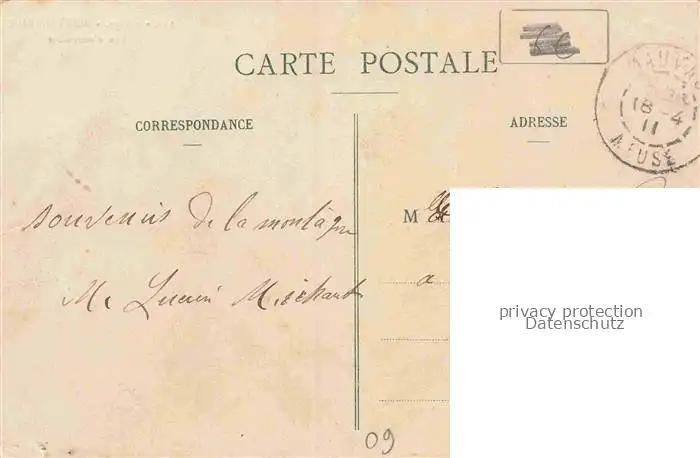 CARTE POSTALE
CORRESPONDANCE
ADRESSE
18 - 4
11
souvenirs de la montagne
M
M. Lucien Michaut
a
privacy protection
Datenschutz
09